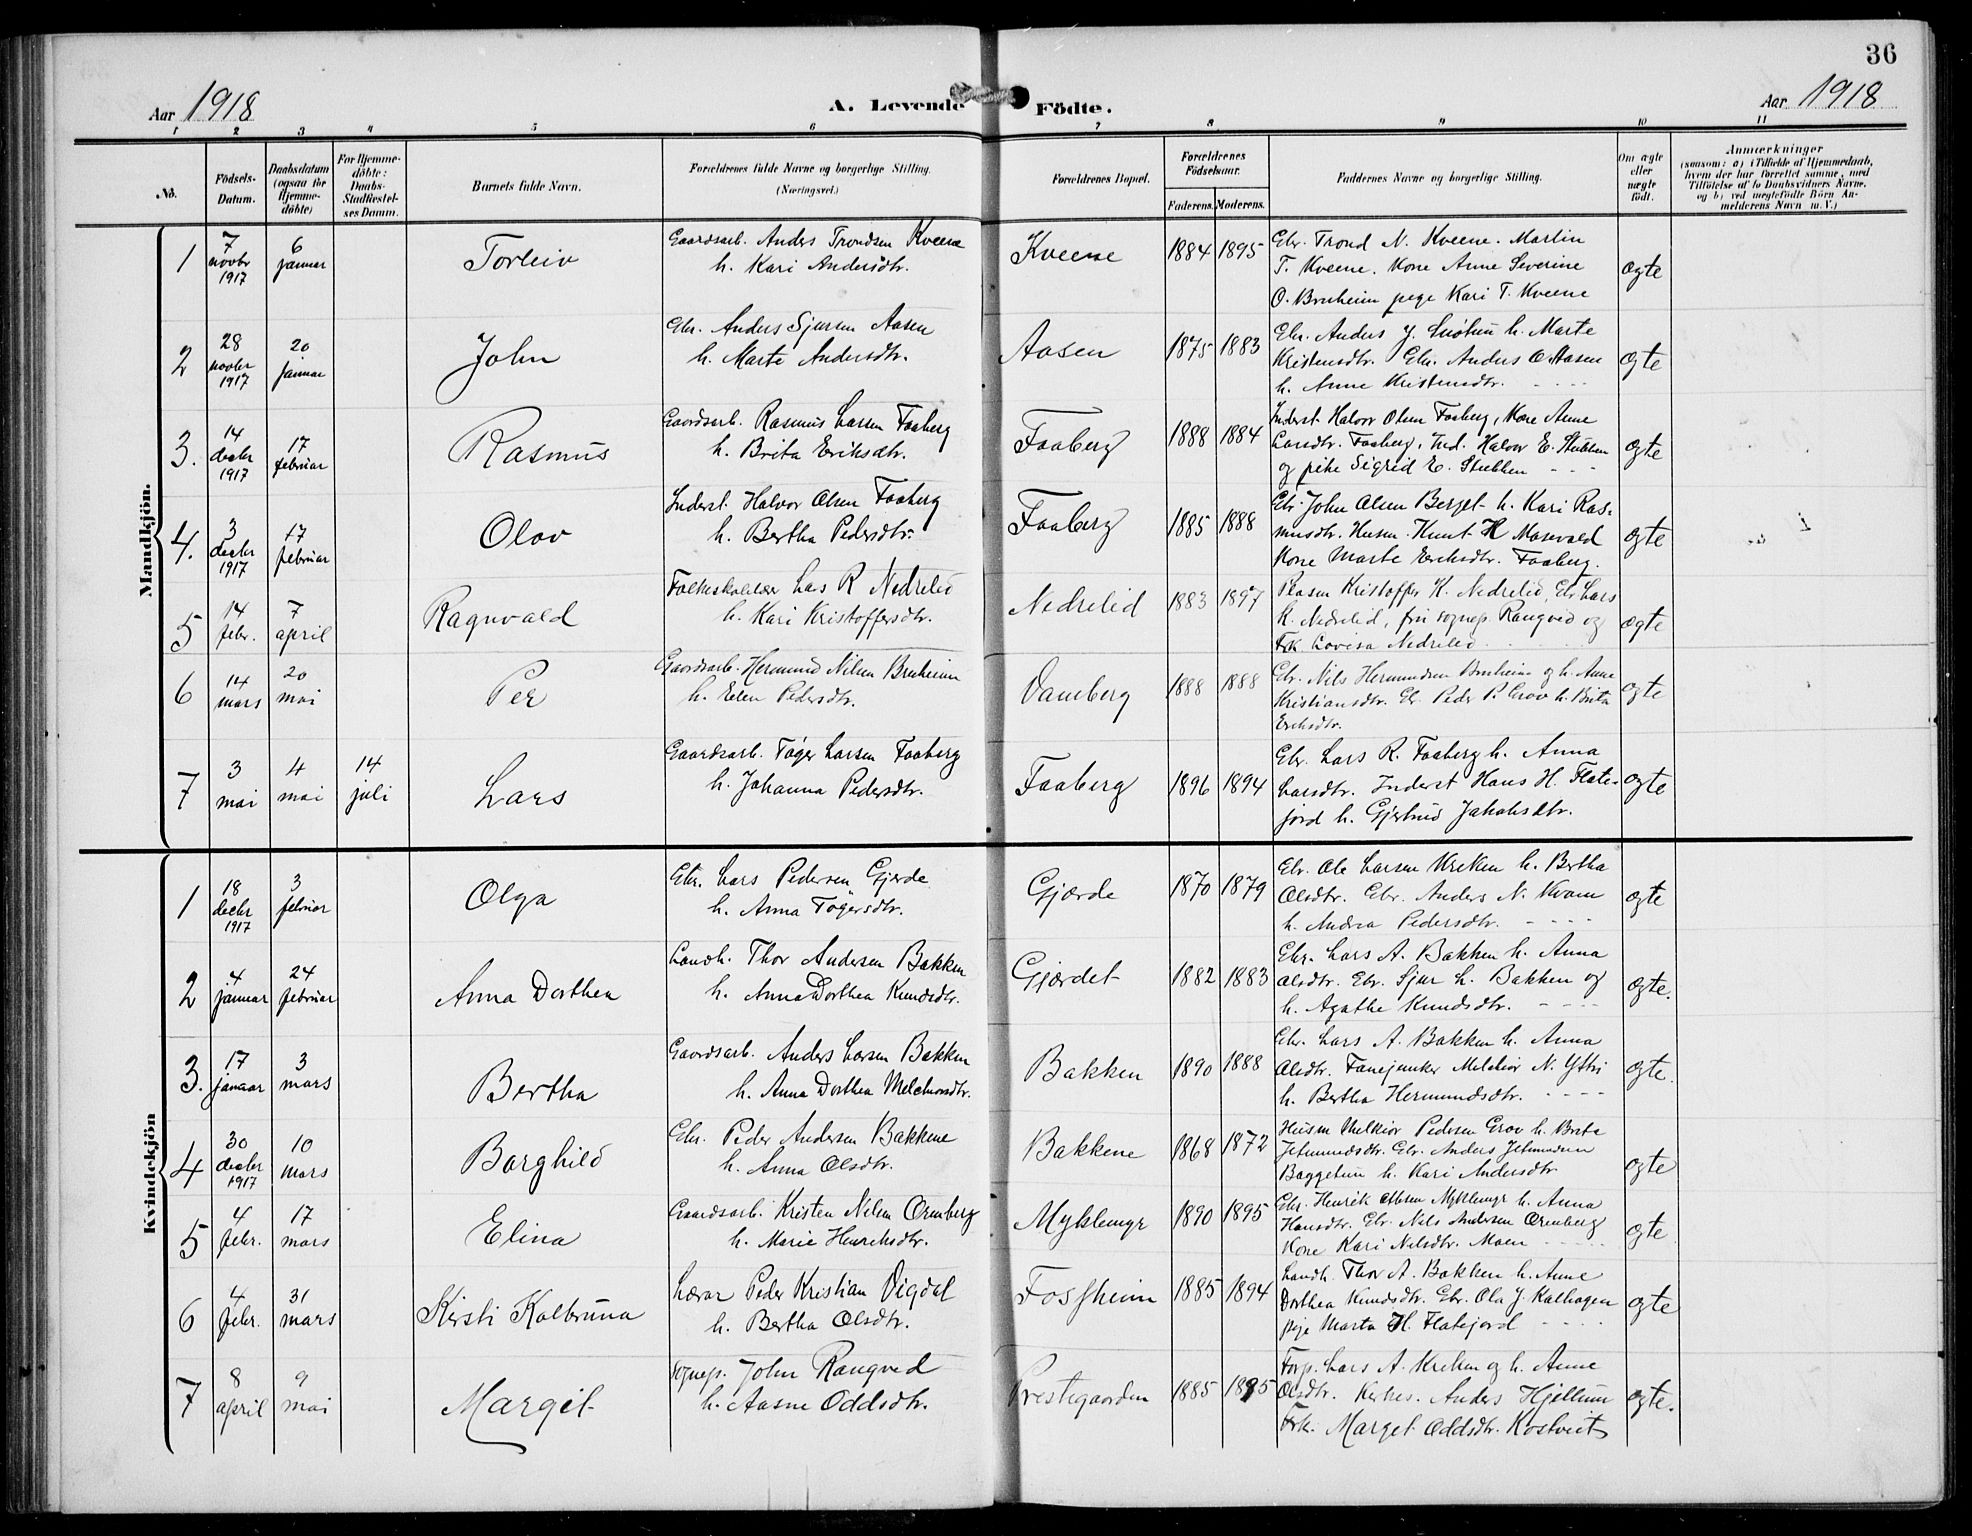 36
Aar 1918
A. Levende Födte.
Aar 1918
1 2 3 4 5 6 7 8 9 10 11
No.
Födsels-Datum.
Daabsdatum (ogsaa for Hjemme-döbte)
For Hjemme-döbte: Daabs-Stadfæstel-ses Datum.
Barnets fulde Navn.
Forældrenes fulde Navne og borgerlige Stilling. (Næringsvei.)
Forældrenes Bopæl.
Forældrenes Födselsaar.
Faderens. Moderens.
Faddernes Navne og borgerlige Stilling.
Om ægte eller uægte födt.
Anmærkninger
(saasom: a) i Tilfælde af Hjemmedaab, hvem der har forrettet samme, med Tilföielse af to Daabsvidners Navne, og b) ved uægtefödte Börn An-melderens Navn m. V.)
Mandkjön.
1 7 novbr 1917 6 januar Torleiv
Gaardsarb. Anders Trondsen Kveene
h. Kari Andersdtr.
Kveene 1884 1895
Gbr. Trond N. Kveene. Martin
T. Kveene. Kone Anne Severine
O. Bruheim pege Kari T. Kveene
ægte
2 28 novbr 1917 20 januar John
Gbr. Anders Sjursen Aasen
h. Marte Andersdtr.
Aasen 1875 1883
Gbr. Anders J. h. Marte
Kristensdtr. Gbr. Anders O. Aasen
h. Anne Kristensdtr.
ægte
3. 14 decbr 1917 17 februar Rasmus
Gaardsarb. Rasmus Larsen Faaberg
h. Brita Eriksdtr.
Faaberg 1888 1884
Inderst Halvor Olsen Faaberg, Kone Anne
Larsdtr. Faaberg, Ind. Halvor E. Stubben
og pike Sigrid E. Stubben
ægte
4. 3 decbr 1917 17 februar Olav
Inderst. Halvor Olsen Faaberg
h. Bertha Pedersdtr.
Faaberg 1885 1888
Gbr John Olsen Berget h. Kari Ras-
musdtr. Husm. Knut H Masvald
Kone Marte Eriksdtr. Faaberg.
ægte
5 14 febr. 7 april Ragnvald
Folkeskolelær Lars R Nedrelid
h. Kari Kristoffersdtr.
Nedrelid 1883 1897
Kristoffer K. Nedrelid, Gbr Lars
K. Nedrelid, fru sognep. Rangved og
Frk Lovisa Nedrelid
ægte
6 14 mars 20 mai Per
Gaardsarb. Hermund Nilsen Bruheim
h. Elen Pedersdtr.
Vamberg 1888 1888
Gbr. Nils Hermundsen Bruheim og h. Anne
Kristiansdtr. Gbr. Peder P. Grov h. Brita
Eriksdtr.
ægte
7 3 mai 4 mai 14 juli Lars
Gaardsarb. Tøger Larsen Faaberg
h. Johanna Pedersdtr.
Faaberg 1896 1894
Gbr. Lars R. Faaberg h. Anna
Larsdtr. Inderst Hans H. Flate-
jord h. Gjertrud Jakobsdtr.
ægte
Kvindekjön
1 18 decbr 1917 3 februar Olga
Gbr. Lars Pedersen Gjerde
h. Anna Tøgersdtr.
Gjærde 1870 1879
Gbr. Ole Larsen Kreken h. Bertha
Olsdtr. Gbr. Anders N. Kvam
h. Andrea Pedersdtr.
ægte
2 4 januar 24 februar Anna Dorthea
Landh. Thor Andersen Bakken
h. Anna Dorthea Knudsdtr.
Gjærdet 1882 1883
Gbr. Lars A. Bakken h. Anna
Olsdtr. Gbr. Sjur L. Bakken og
h. Agathe Knudsdtr.
ægte.
3. 17 januar 3 mars Bertha
Gaardsarb. Anders Larsen Bakken
h. Anna Dorthea Melchiorsdtr.
Bakken 1890 1888
Gbr. Lars A. Bakken h. Anna
Olsdtr. Fanejunker Melkior N. Yttri
h. Bertha Hermundsdtr.
ægte.
4 30 decbr 1917 10 mars Borghild
Gbr. Peder Andersen Bakkene
h. Anna Olsdtr.
Bakkene 1868 1872
Husm Melkior Pedersen Grov h. Brita
Jetmundsdtr. Gbr. Anders Jetmundsen
Baggetun h. Kari Andersdtr
ægte
5 4 febr. 17 mars Elina
Gaardsarb. Kristen Nilsen Ormberg
h. Marie Henriksdtr.
Myklemyr 1890 1895
Gbr. Henrik Myklemyr h. Anna
Hansdtr. Gbr. Nils Andersen Ormberg
Kone Kari Nilsdtr. Moen
ægte
6 4 febr. 31 mars Kirsti Kolbruna
Lærar Peder Kristian Vigdal
h. Bertha Olsdtr.
Fossheim 1885 1894
Landh. Thor A. Bakken h. Anne
Dorthea Knudsdtr. Gbr. Ola J. Kalhagen
pige Marta H. Flatejord
ægte
7 8 april 9 mai Margit
sognep. John Rangved
h. Aasne Oddsdtr.
Prestegaarden 1885 1895
Forp. Lars A. Kreken og h. Anne
Olsdtr. Kirkes. Anders Hjellum
Frk. Marget Oddsdtr. Kostveit
ægte.